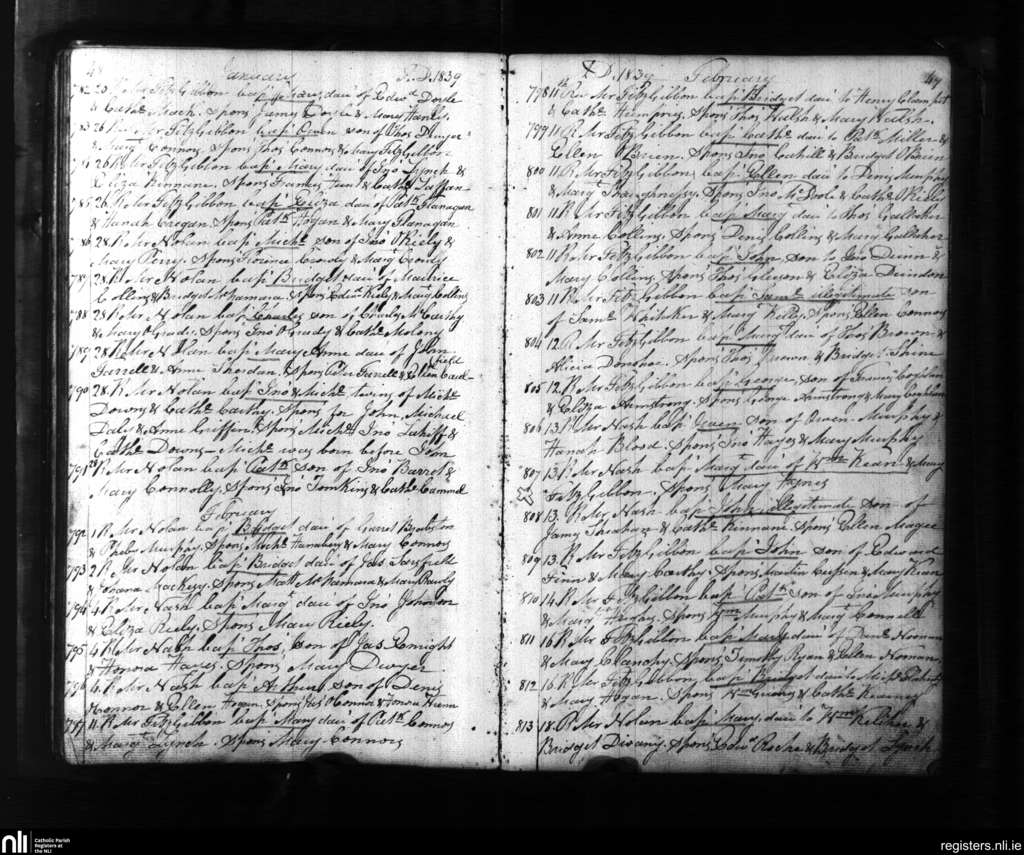 January A.D. 1839
782 Fitz Gibbon bap Mary dau of Edwd Doyle
& Cathe Mack. Spons James Doyle & Mary Hanly
783 26 Rev Mr Fitz Gibbon bap Owen son of Thos Dwyer
& Marg Connors Spons Thos Connors & Mary Fitz Gibbon
26 R Mr Fitz Gibbon bap Mary dau of Jno Lynch &
Eliza Kinnane. Spons Francis & Cathe
785 26 R Mr Fitz Gibbon bap Eliza dau of Patk Flanagan
& Hanah Cregan Spons Patk Hogan & Mary Flanagan
786 28 R Mr Nolan bap Michl son of Jno Riely &
Mary Perry. Spons Florence Crowly & Marg Crowly
787 28 R Mr Nolan bap Bridget dau of Maurice
Collins & Bridget McNamara Spons Edwd Riely & Mary Collins
788 28 R Mr Nolan bap Charles son of Charles McCarthy
& Mary O'Grady. Spons Jno O'Grady & Cathe Molony
789 28 R Mr Nolan bap Mary Anne dau of John
Farrell & Anne Sheridan. Spons Peter Farrell & Ellen Caul-
field
790 28. R Mr Nolan bap Jno & Michl twins of Michl
Downs & Cathe Carthy. Spons for John, Michael
Daly & Anne Griffin. Spons Michl Jno &
Cathe Downs - Michl was born before John
791 R Mr Nolan bap Patk son of Jno Barret &
Mary Connolly. Spons Jno Tomkins & Cathe Cammel
February
792 1 R Mr Nolan bap Bridget dau of Garet
& Phebe Murphy. Spons Michl Hanahan & Mary Connors
793 2 R Mr Nolan bap Bridget dau of Jas Sarsfield
& Joana Mackey. Spons Matt McNamara & Mary
794 4 R Mr Nash bap Margt dau of Jno Johnson
& Eliza Riely. Spons Mary Riely.
795 4 R Mr Nash bap Thos, son of Jas Enright
& Honora Hayes. Spons Mary Dwyer
796 6. R Mr Nash bap Arthur son of Denis
Connor & Ellen Hogan. Spons Jas O'Connor & Honora
797 11. R Mr Fitz Gibbon bap Mary dau of Patk Connors
& Margt Lynch. Spons Mary Connors
A.D. 1839 February 49
798 11th Rev Mr Fitz Gibbon bap Bridget dau to Henry
& Cathe Humprys. Spons Thos Walsh & Mary Walsh.
799 11 R Mr Fitz Gibbon bap Cathe dau to Patk Miller &
Ellen O'Brien. Spons Jno Cahill & Bridget O'Brien
800 11 R Mr Fitz Gibbon bap Ellen dau to Denis Murphy
& Mary Shaughnessy. Spons Jno & Cathe
801 11 R Mr Fitz Gibbon bap Mary dau to Thos Gallaher
& Anne Collins. Spons Denis Collins & Mary Gallaher
802 11 R Mr Fitz Gibbon bap John son to Geo Dunn &
Mary Collins. Spons Thos & Eliza
803 11 R Mr Fitz Gibbon bap Saml illegitimate son
of Saml Whitaker & Mary Kelly. Spons Ellen Connors
804 12 R Mr Fitz Gibbon bap Mary dau of Thos Brown &
Alicia Donohoe. Spons Thos Brown & Bridget Shine
805 12. R Mr Fitz Gibbon bap George, son of Francis Coghlan
& Eliza Armstrong. Spons George Armstrong & Mary Coghlan
806 13. R Mr Nash bap son of Owen Murphy &
Hanah Blood. Spons Jno Hayes & Mary Murphy
807 13 R Mr Nash bap Margt dau of Wm Kean & Mary
Fitz Gibbon. Spons Mary Hynes
808 13. R Mr Nash bap John illegitimate son of
James Sheahan & Cathe Kinnane Spons Ellen Magee
809 13. R Mr Fitz Gibbon bap John son of Edward
Finn & Mary Carthy. Spons Martin Cussen & Mary Kean
810 14 R Mr Fitz Gibbon bap Patk son of Jno Murphy
& Margt Spons Wm Murphy & Margt Connell
811 16 R Mr Fitz Gibbon bap Mary dau of Danl Noonan
& Mary Clanchy. Spons Timothy Ryan & Ellen Noonan.
812 16 R Mr Fitz Gibbon bap Bridget dau to Michl
& Mary Hogan. Spons & Cathe
813 18 R Mr Nolan bap Mary dau to Wm Kelcher &
Bridget Divany. Spons Edwd Roche & Bridget Lynch
nli Catholic Parish
Registers at
the NLI
registers.nli.ie